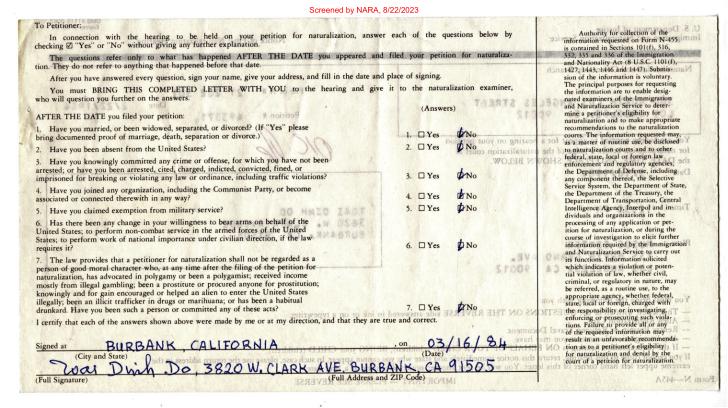 Screened by NARA, 8/22/2023
To Petitioner:
In connection with the hearing to be held on your petition for naturalization, answer each of the questions below by
checking ☑ "Yes" or "No" without giving any further explanation.
The questions refer only to what has happened AFTER THE DATE you appeared and filed your petition for naturaliza-
tion. They do not refer to anything that happened before that date.
After you have answered every question, sign your name, give your address, and fill in the date and place of signing.
You must BRING THIS COMPLETED LETTER WITH YOU to the hearing and give it to the naturalization examiner,
who will question you further on the answers.
AFTER THE DATE you filed your petition:
(Answers)
1. Have you married, or been widowed, separated, or divorced? (If "Yes" please
bring documented proof of marriage, death, separation or divorce.)
1. ☐ Yes ☑ No
2. Have you been absent from the United States?
2. ☐ Yes ☑ No
3. Have you knowingly committed any crime or offense, for which you have not been
arrested; or have you been arrested, cited, charged, indicted, convicted, fined, or
imprisoned for breaking or violating any law or ordinance, including traffic violations?
3. ☐ Yes ☑ No
4. Have you joined any organization, including the Communist Party, or become
associated or connected therewith in any way?
4. ☐ Yes ☑ No
5. Have you claimed exemption from military service?
5. ☐ Yes ☑ No
6. Has there been any change in your willingness to bear arms on behalf of the
United States; to perform non-combat service in the armed forces of the United
States; to perform work of national importance under civilian direction, if the law
requires it?
6. ☐ Yes ☑ No
7. The law provides that a petitioner for naturalization shall not be regarded as a
person of good moral character who, at any time after the filing of the petition for
naturalization, has advocated in polygamy or been a polygamist; received income
mostly from illegal gambling; been a prostitute or procured anyone for prostitution;
knowingly and for gain encouraged or helped an alien to enter the United States
illegally; been an illicit trafficker in drugs or marihuana; or has been a habitual
drunkard. Have you been such a person or committed any of these acts?
7. ☐ Yes ☑ No
I certify that each of the answers shown above were made by me or at my direction, and that they are true and correct.
Signed at BURBANK, CALIFORNIA , on 03/16/84
(City and State) (Date)
Dinh Do, 3820 W. CLARK AVE, BURBANK, CA 91505
(Full Signature) (Full Address and ZIP Code)
Authority for collection of the
information requested on Form N-455
is contained in Sections 101(f), 316,
332, 335 and 336 of the Immigration
and Nationality Act (8 U.S.C. 1101(f),
1427, 1443, 1446 and 1447). Submis-
sion of the information is voluntary.
The principal purposes for requesting
the information are to enable desig-
nated examiners of the Immigration
and Naturalization Service to deter-
mine a petitioner's eligibility for
naturalization and to make appropriate
recommendations to the naturalization
courts. The information requested may,
as a matter of routine use, be disclosed
to naturalization courts and to other
federal, state, local or foreign law
enforcement and regulatory agencies,
the Department of Defense, including
any component thereof, the Selective
Service System, the Department of State,
the Department of the Treasury, the
Department of Transportation, Central
Intelligence Agency, Interpol and in-
dividuals and organizations in the
processing of any application or pet-
ition for naturalization, or during the
course of investigation to elicit further
information required by the Immigration
and Naturalization Service to carry out
its functions. Information solicited
which indicates a violation or poten-
tial violation of law, whether civil,
criminal, or regulatory in nature, may
be referred, as a routine use, to the
appropriate agency, whether federal,
state, local or foreign, charged with
the responsibility of investigating,
enforcing or prosecuting such viola-
tions. Failure to provide all or any
of the requested information may
result in an unfavorable recommenda-
tion as to a petitioner's eligibility
for naturalization and denial by the
court of a petition for naturalization.